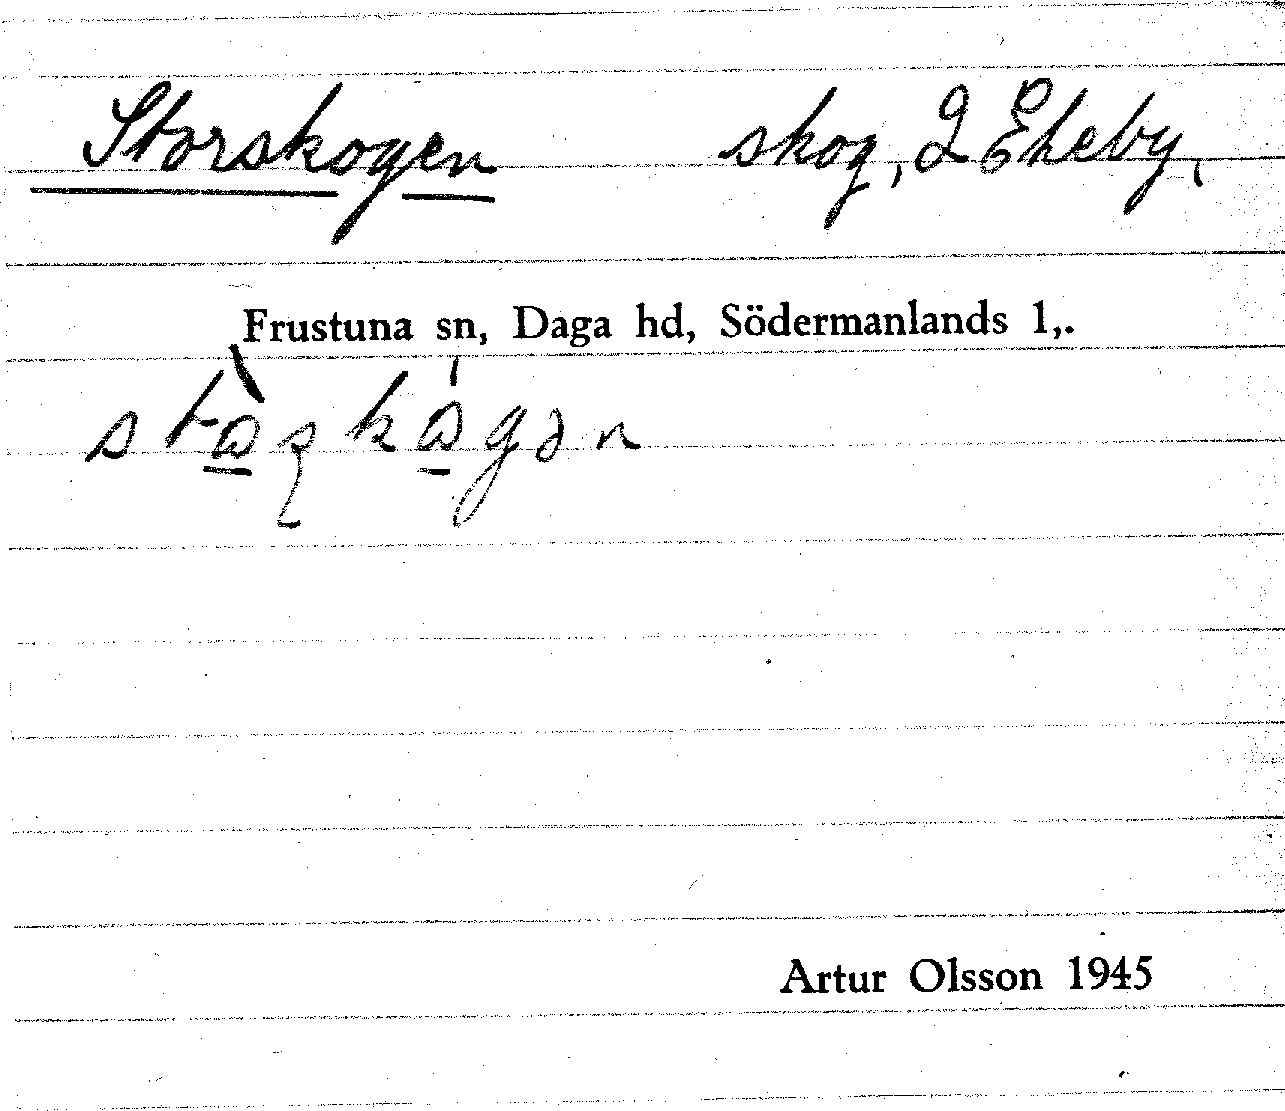 Storskogen skog, 2 Ekeby,
Frustuna sn, Daga hd, Södermanlands l,.
Artur Olsson 1945